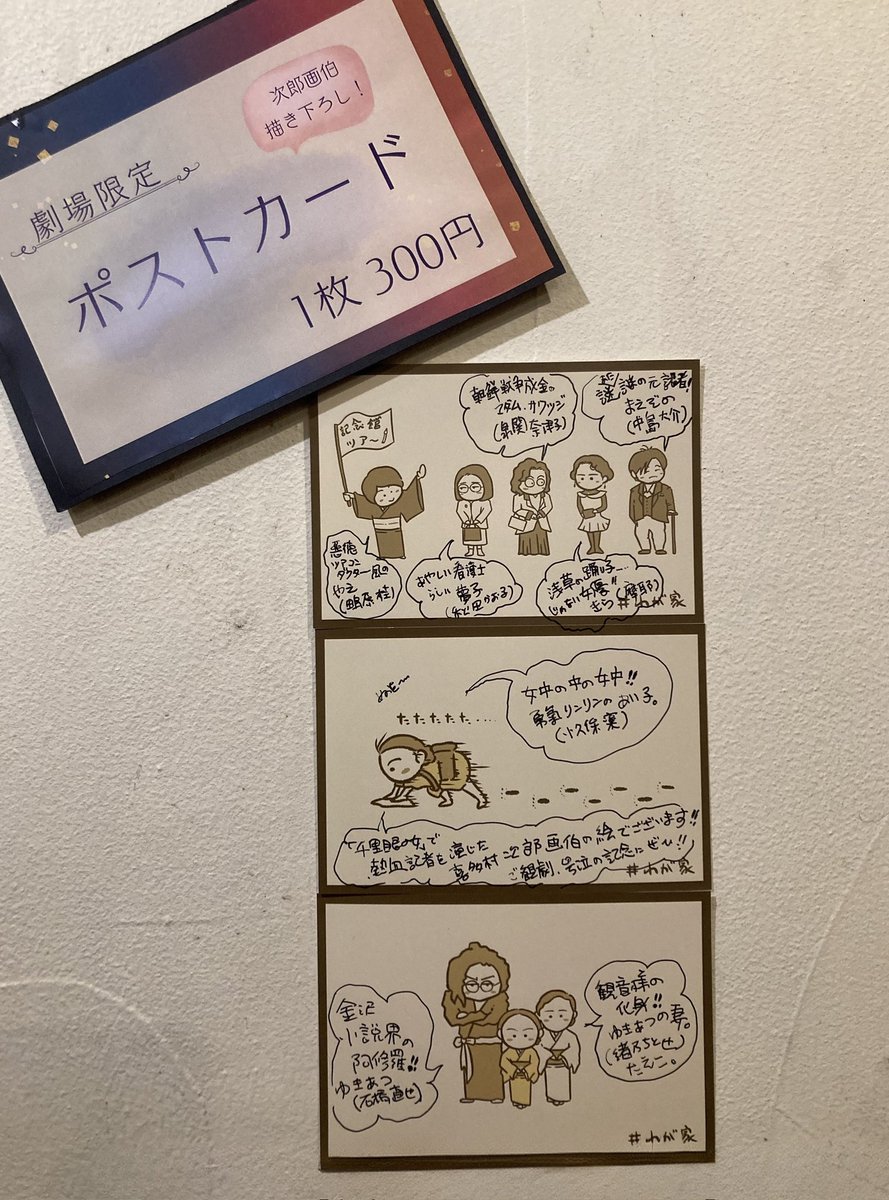 次郎画伯
描き下ろし！
劇場限定
ポストカード
1枚 300円
記念館
ツアー！
朝鮮戦争成金の
マダム・カワッジ
(泉関奈津子)
謎の元記者!
まえぞの
(中島大介)
悪徳
ツアコン
やえ
あやしい看護士
らしい
浅草の踊り子……
じゃない女優!!
きら (摩耶)
#わが家
たたたたた....
女中の中の女中!!
勇気リンリンのあい子。
(小久保
「千里眼の女」で
熱血記者を演じた
喜多村次郎画伯の絵でございます!!
ご観劇、号泣の記念にぜひ!!
#わが家
金沢
小説界の
阿修羅!!
ゆきあつ
(石橋直也)
観音様の
化身!!
ゆきあつの妻。
(緒乃ちとせ)
たえこ。
#わが家